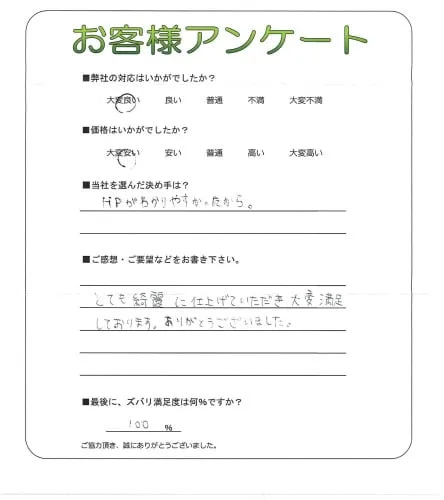 お客様アンケート
■弊社の対応はいかがでしたか？
大変良い 良い 普通 不満 大変不満
■価格はいかがでしたか？
大変安い 安い 普通 高い 大変高い
■当社を選んだ決め手は？
HPがわかりやすかったから。
■ご感想・ご要望などをお書き下さい。
とても綺麗に仕上げていただき大変満足
しております。ありがとうございました。
■最後に、ズバリ満足度は何％ですか？
100 %
ご協力頂き、誠にありがとうございました。